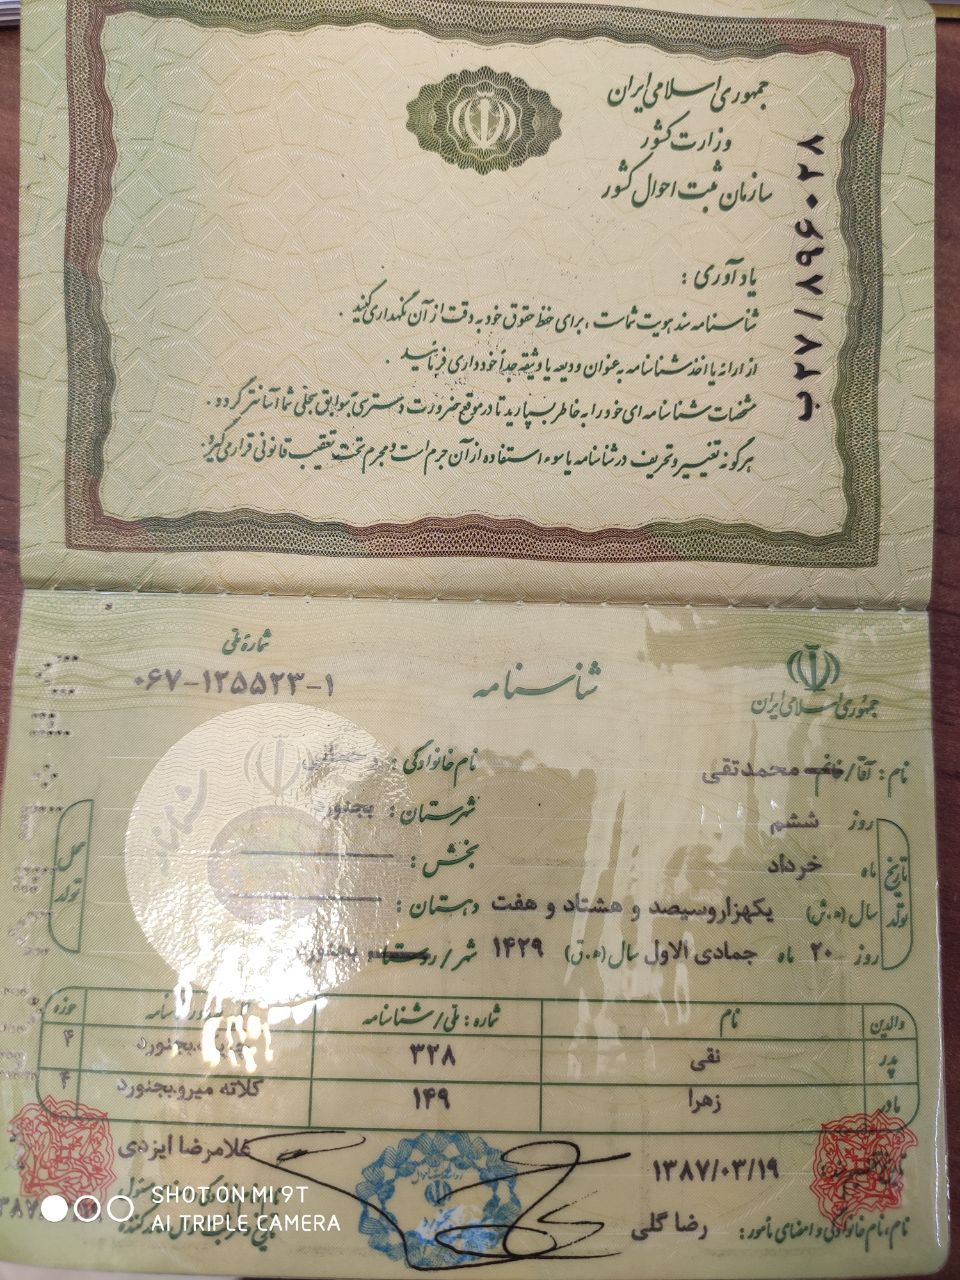 جمهوری اسلامی ایران
وزارت کشور
سازمان ثبت احوال کشور
ب۲۷/۸۹۶۰۲۸
یادآوری :
شناسنامه سند هویت شماست ، برای حفظ حقوق خود به دقت از آن نگهداری کنید .
از ارائه یا اخذ شناسنامه به عنوان ودیعه یا وثیقه جداً خودداری فرمائید .
مشخصات شناسنامه ای خود را به خاطر بسپارید تا در موقع ضرورت دسترسی به سوابق سجلی شما آسانتر گردد .
هرگونه تغییر و تحریف در شناسنامه یا سوء استفاده از آن جرم است و مجرم تحت تعقیب قانونی قرار می گیرد.
شماره ملی
۰۶۷-۱۲۵۵۲۳-۱
شناسنامه
جمهوری اسلامی ایران
نام : آقا/خانم محمدتقی
نام خانوادگی :
تاریخ تولد
روز ششم
ماه خرداد
سال (ه.ش) یکهزاروسیصد و هشتاد و هفت
روز ۲۰ ماه جمادی الاول سال (ه.ق) ۱۴۲۹
محل تولد
شهرستان : بجنورد
بخش :
دهستان :
شهر/روستا بجنورد
والدین نام شماره : ملی/شناسنامه حوزه
پدر نقی ۳۲۸ بجنورد ۴
مادر زهرا ۱۴۹ کلاته میرو.بجنورد ۴
غلامرضا ایزدی
۱۳۸۷/۰۳/۱۹
نام، نام خانوادگی و امضای مأمور : رضا گلی
SHOT ON MI 9T
AI TRIPLE CAMERA